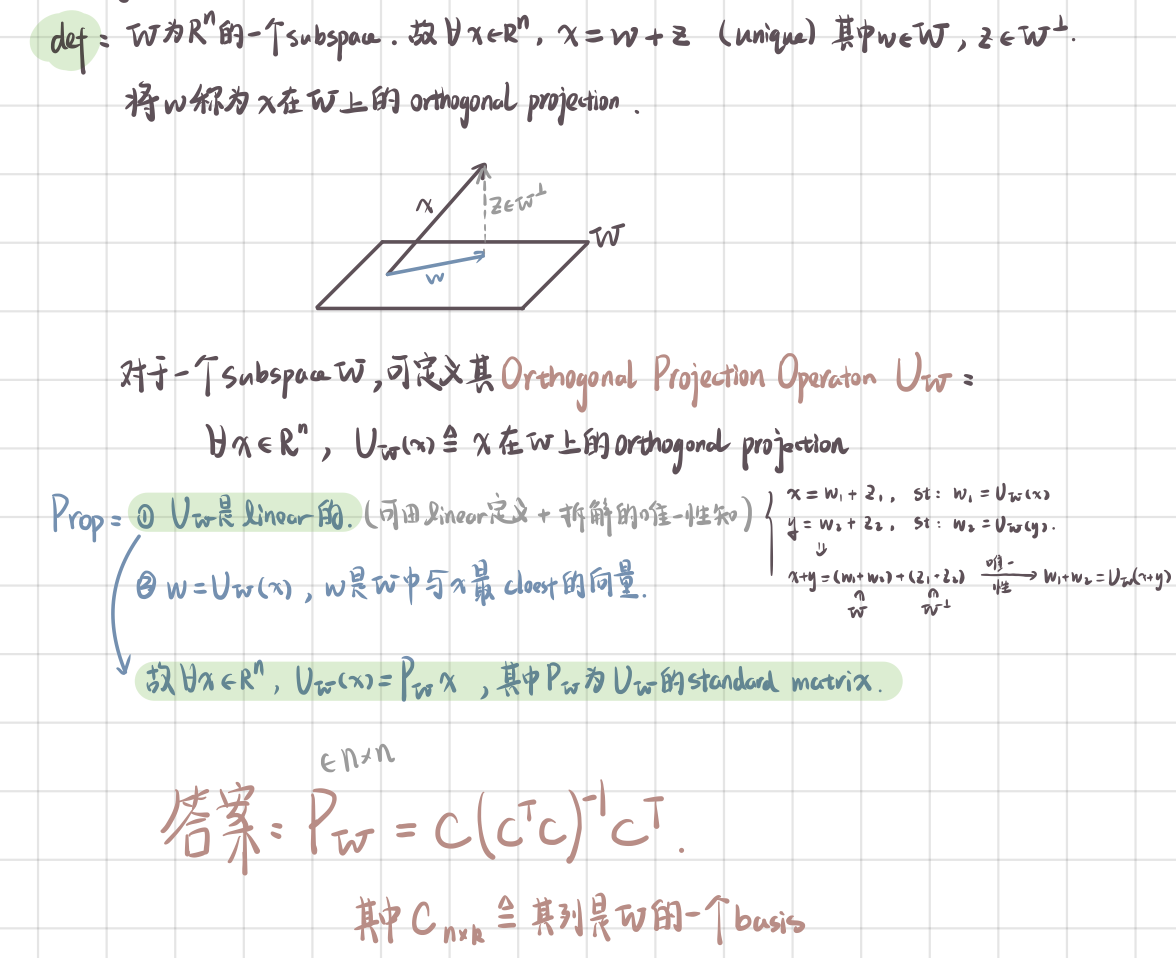 def: W为Rⁿ的一个subspace. 故∀x∈Rⁿ, x = w + z (unique) 其中w∈W, z∈W⊥.
将w称为x在W上的 orthogonal projection.
x
z∈W⊥
W
w
对于一个subspace W, 可定义其Orthogonal Projection Operaton U_W:
∀x∈Rⁿ, U_W(x) ≜ x在W上的orthogonal projection
Prop: ① U_W是linear的. (可由linear定义 + 拆解的唯一性知)
x = w₁ + z₁, st: w₁ = U_W(x)
y = w₂ + z₂, st: w₂ = U_W(y).
↓
x+y = (w₁+w₂) + (z₁+z₂) 唯一性→ w₁+w₂ = U_W(x+y)
∩ ∩
W W⊥
② w = U_W(x), w是W中与x最cloest的向量.
故∀x∈Rⁿ, U_W(x) = P_W x, 其中P_W为U_W的standard matrix.
∈ n×n
答案: P_W = C(CᵀC)⁻¹Cᵀ.
其中 C_{n×k} ≜ 其列是W的一个basis